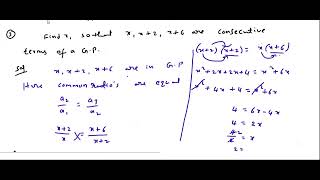 ③ Find x, so that x, x+2, x+6 are consecutive
terms of a G.P.
Sol x, x+2, x+6 are in G.P
Here common ratio's are equal
a₂/a₁ = a₃/a₂
x+2/x = x+6/x+2
(x+2)(x+2) = x(x+6)
x²+2x+2x+4 = x²+6x
x²+4x+4 = x²+6x
4 = 6x-4x
4 = 2x
4/2 = x
2=